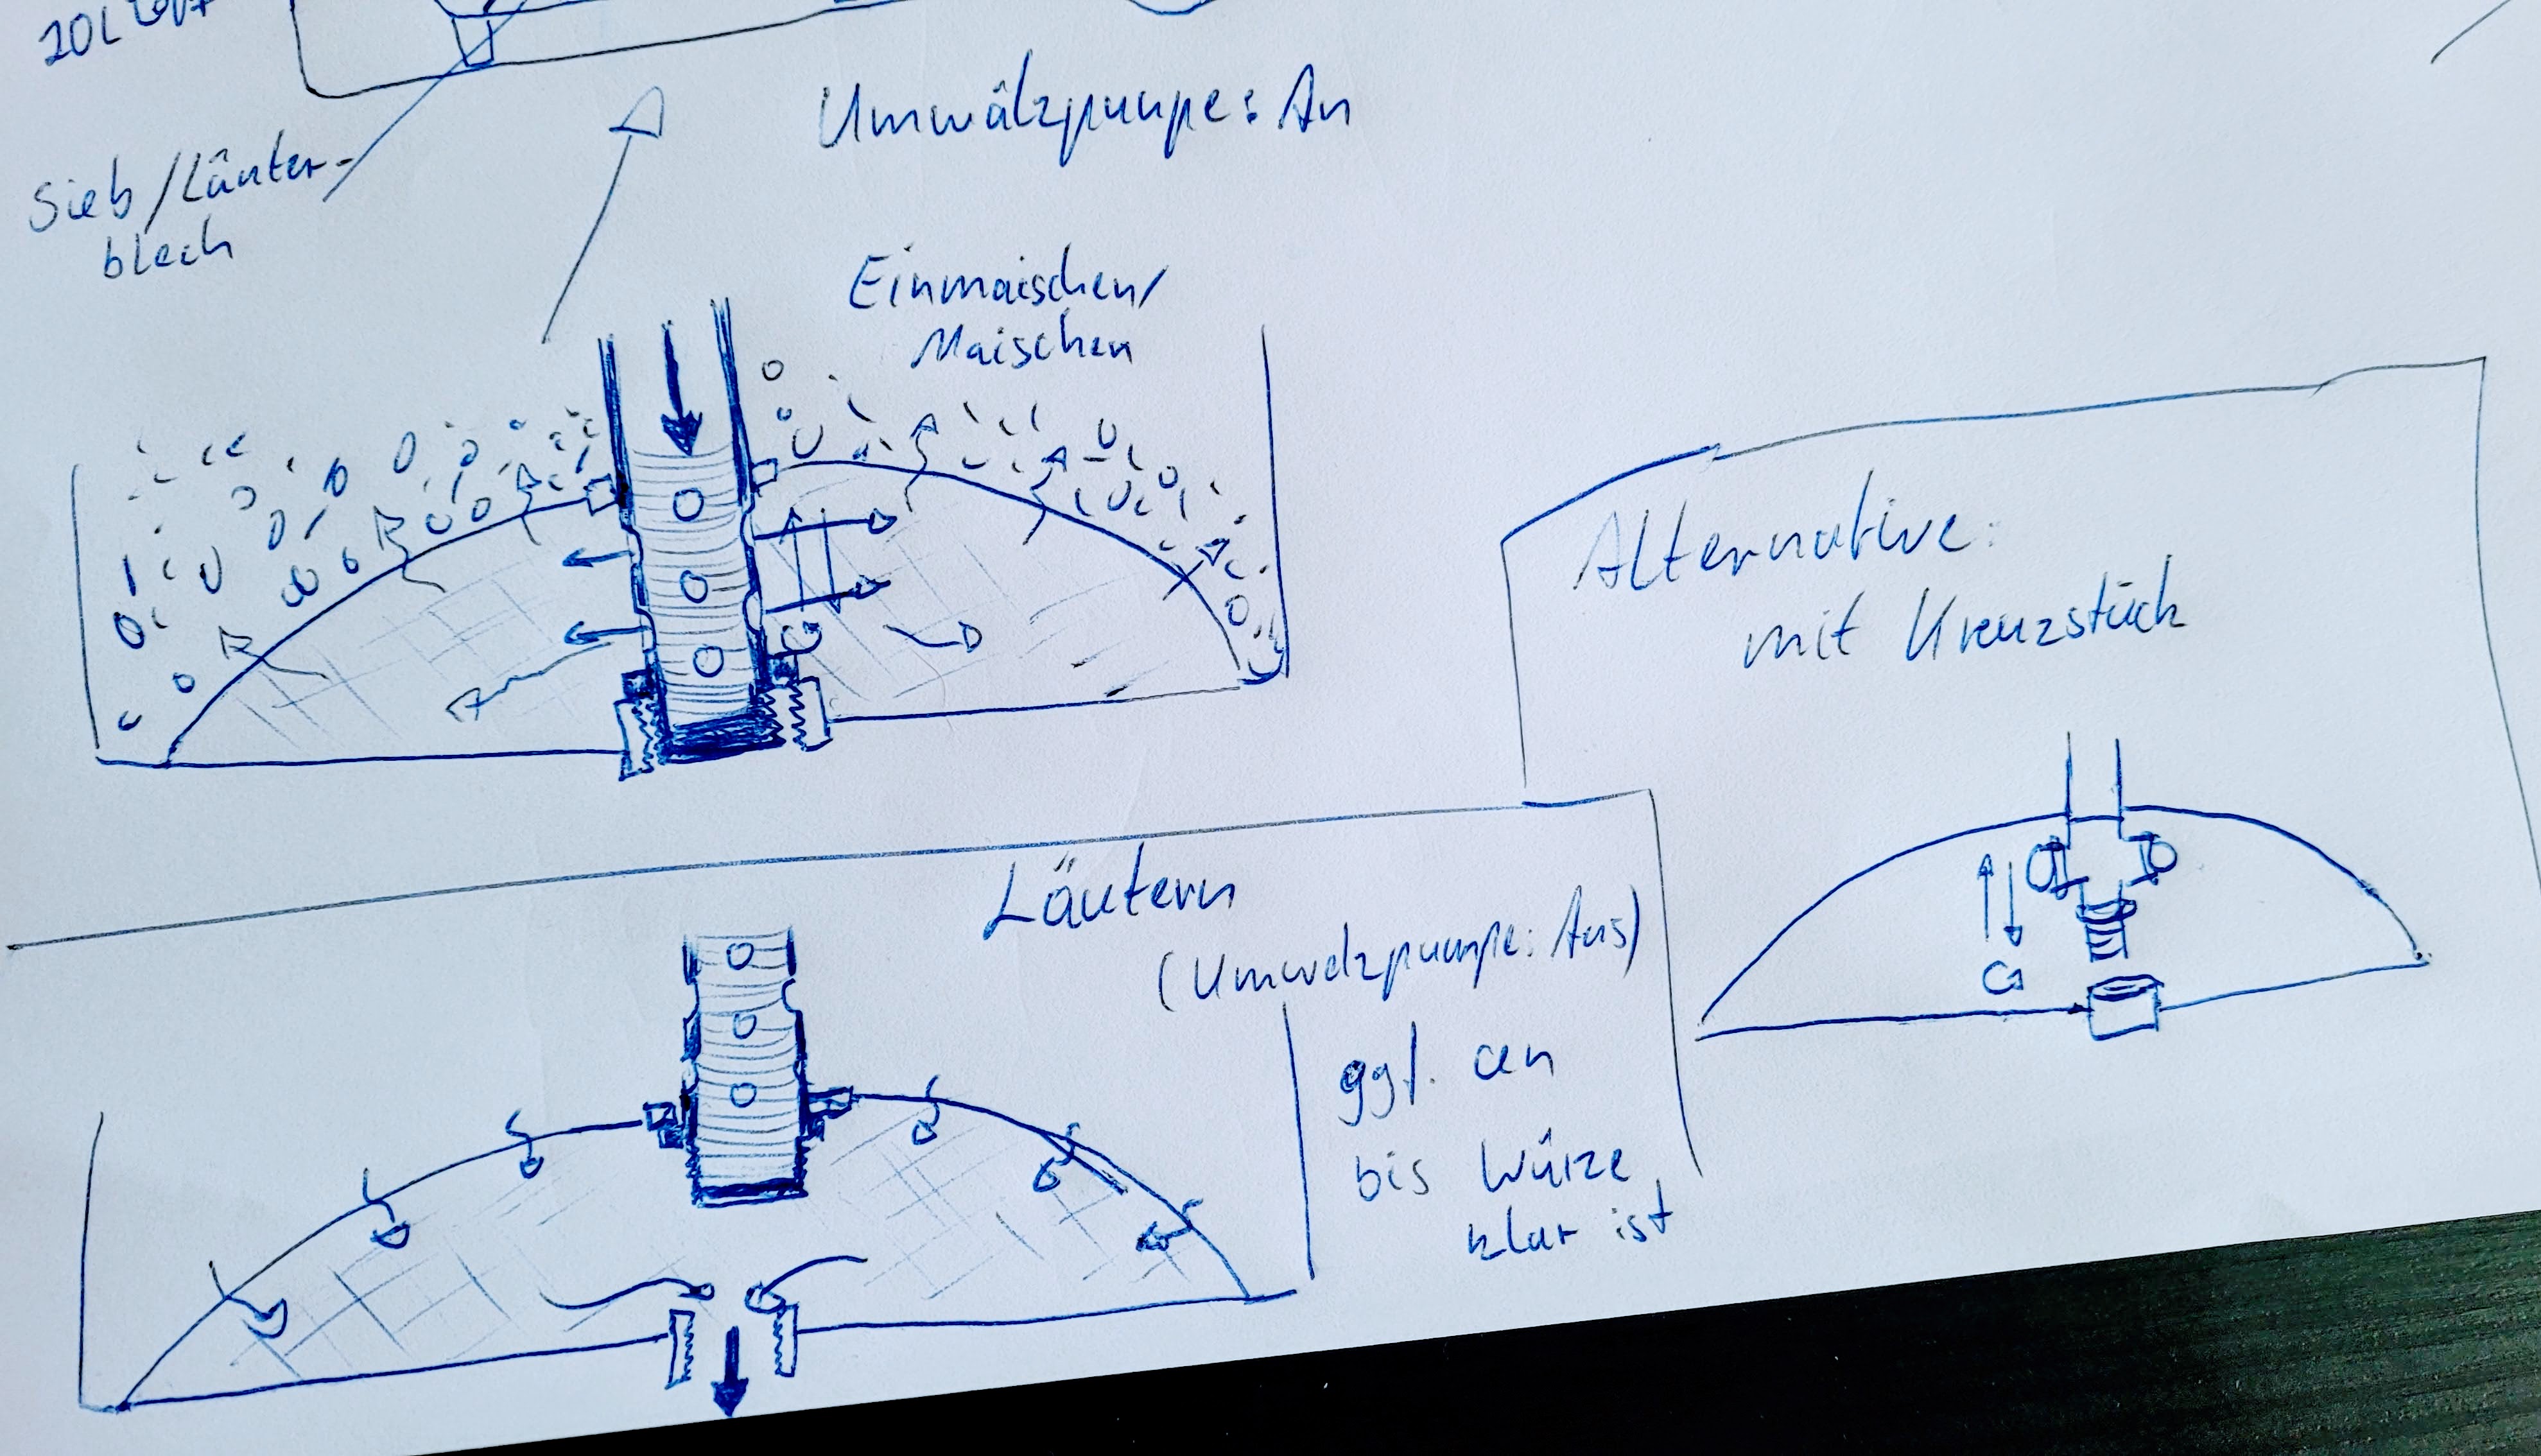 20L Topf
Umwälzpumpe: An
Sieb/Läuter-
blech
Einmaischen/
Maischen
Alternative:
mit Kreuzstück
Läutern
(Umwelzpumpe: Aus)
ggf. an
bis Würze
klar ist